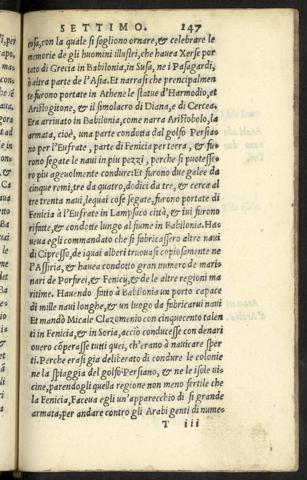 SETTIMO. 147
cosa, con la quale si sogliono ornare, & celebrare le
memorie de gli huomini illustri, che hauea Xerse por
tato di Grecia in Babilonia, in Susa, ne i Pasagardi,
ò altra parte de l'Asia. Et narrasi che prencipalmen
te furono portate in Athene le statue d'Harmodio, et
Aristogitone, & il simolacro di Diana, e di Cercea.
Era arriuato in Babilonia, come narra Aristobolo, la
armata, cioè, una parte condotta dal golfo Persia-
no per l'Eufrate, parte di Fenicia per terra, & fu-
rono segate le naui in piu pezzi, perche si potesse-
ro piu ageuolmente condure: Et furono due galee da
cinque remi, tre da quattro, dodici da tre, & cerca al
tre trenta naui, lequai cose segate, furono portate di
Fenicia à l'Eufrate in Lampsaco città, & iui furono
rifatte, & condotte lungo al fiume in Babilonia. Ha-
ueua egli commandato che si fabricassero altre naui
di Cipresso, de iquai alberi trouaua si copiosamente ne
l'Assiria, & hauea condotto gran numero de mari-
nari de Porfirei, & Fenicij, & de le altre regioni ma
ritime. Hauendo fatto à Babilonia un porto capace
di mille naui longhe, & un luogo da fabricarui naui
Et mandò Micale Clazomenio con cinquecento talen
ti in Fenicia, & in Soria, acciò conducesse con denari
ouero cõperasse tutti quei, ch'erano à nauicare sper
ti. Perche erasi gia deliberato di condure le colonie
ne la spiaggia del golfo Persiano, & ne le isole ui-
cine, parendogli quella regione non meno fertile che
la Fenicia, Faceua egli un'apparecchio di si grande
armata, per andare contro gli Arabi genti di nume-
T iii